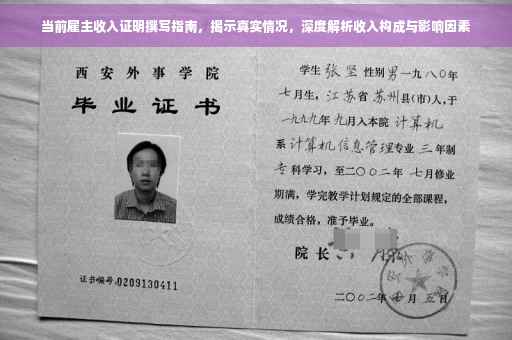 当前雇主收入证明撰写指南，揭示真实情况，深度解析收入构成与影响因素
西安外事学院
毕业证书
证书编号:0209130411
学生 张坚 性别 男 一九八〇年
七月生，江苏省 苏州县(市)人，于
一九九九年 九月入本院 计算机
系 计算机信息管理专业 三年制
专科学习，至二〇〇二年 七月修业
期满，学完教学计划规定的全部课程，
成绩合格，准予毕业。
院长
二〇〇二年 七月 五日